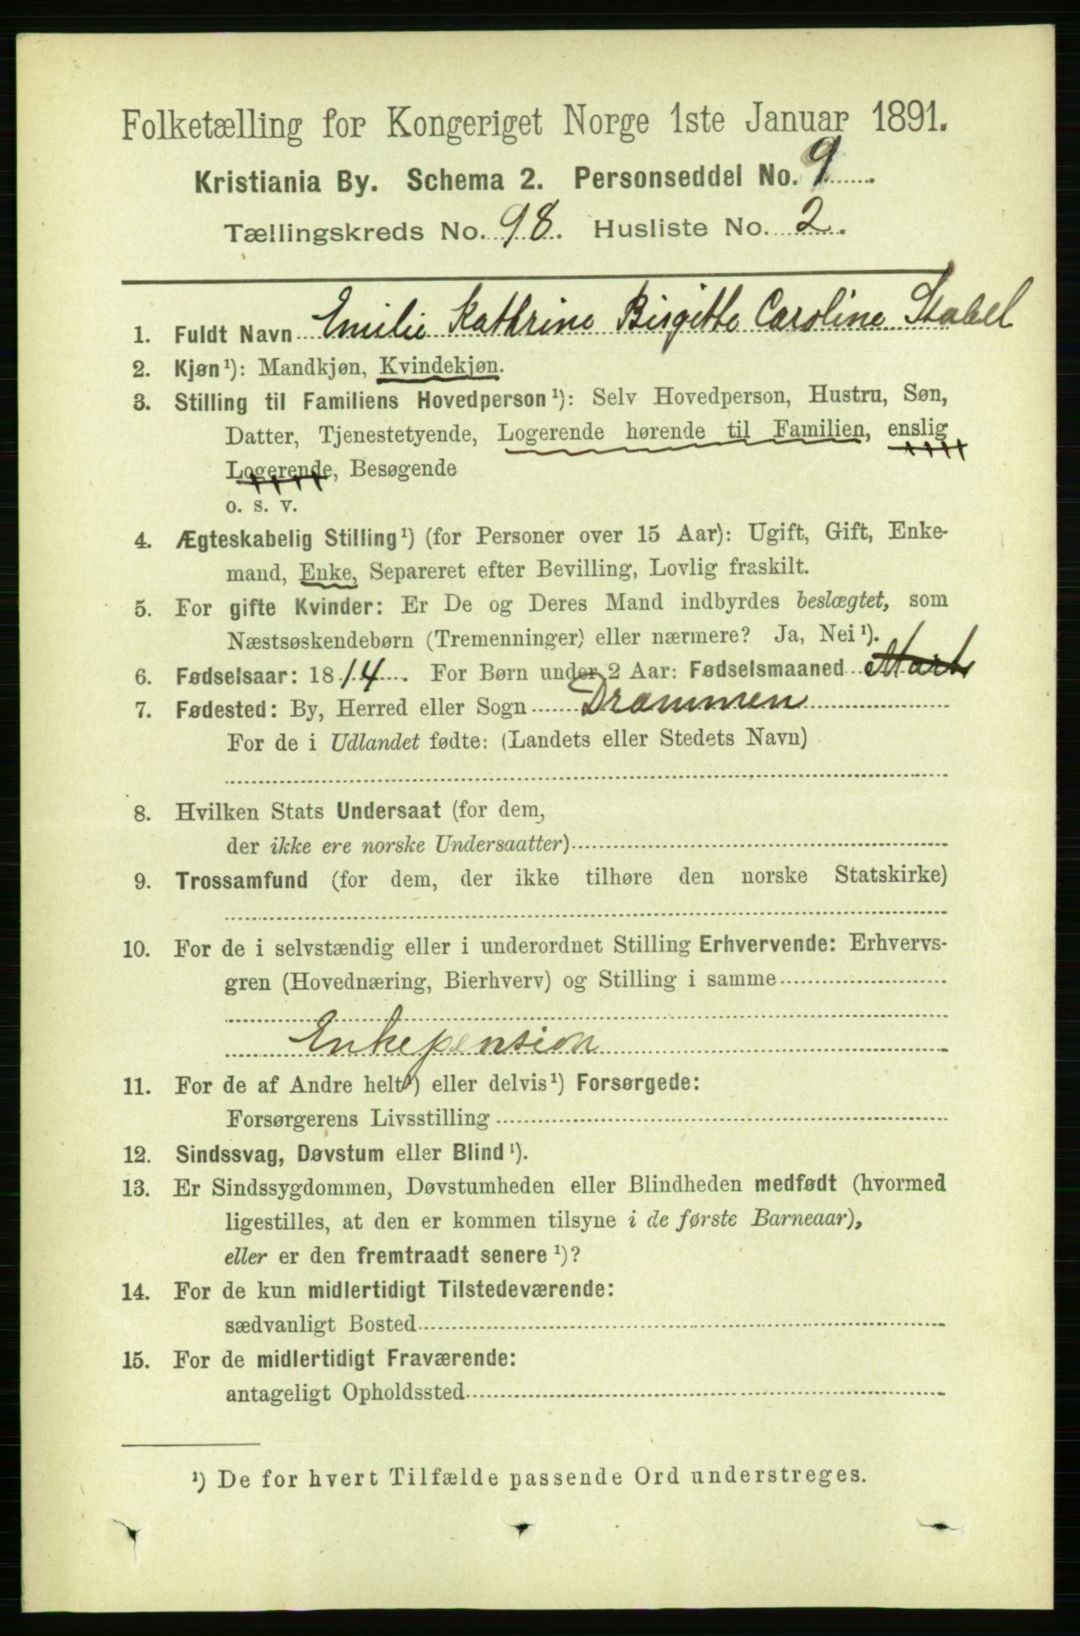 Folketælling for Kongeriget Norge 1ste Januar 1891.
Kristiania By. Schema 2. Personseddel No. 9
Tællingskreds No. 98. Husliste No. 2
1. Fuldt Navn Emilie Kathrine Birgitte Caroline Stabel
2. Kjøn¹): Mandkjøn, Kvindekjøn.
3. Stilling til Familiens Hovedperson¹): Selv Hovedperson, Hustru, Søn,
Datter, Tjenestetyende, Logerende hørende til Familien, enslig
Logerende, Besøgende
o. s. v.
4. Ægteskabelig Stilling¹) (for Personer over 15 Aar): Ugift, Gift, Enke-
mand, Enke, Separeret efter Bevilling, Lovlig fraskilt.
5. For gifte Kvinder: Er De og Deres Mand indbyrdes beslægtet, som
Næstsøskendebørn (Tremenninger) eller nærmere? Ja, Nei¹).
6. Fødselsaar: 1814. For Børn under 2 Aar: Fødselsmaaned Marts
7. Fødested: By, Herred eller Sogn Drammen
For de i Udlandet fødte: (Landets eller Stedets Navn)
8. Hvilken Stats Undersaat (for dem,
der ikke ere norske Undersaatter)
9. Trossamfund (for dem, der ikke tilhøre den norske Statskirke)
10. For de i selvstændig eller i underordnet Stilling Erhvervende: Erhvervs-
gren (Hovednæring, Bierhverv) og Stilling i samme
Enkepension
11. For de af Andre helt¹) eller delvis¹) Forsørgede:
Forsørgerens Livsstilling
12. Sindssvag, Døvstum eller Blind¹).
13. Er Sindssygdommen, Døvstumheden eller Blindheden medfødt (hvormed
ligestilles, at den er kommen tilsyne i de første Barneaar),
eller er den fremtraadt senere¹)?
14. For de kun midlertidigt Tilstedeværende:
sædvanligt Bosted
15. For de midlertidigt Fraværende:
antageligt Opholdssted
¹) De for hvert Tilfælde passende Ord understreges.